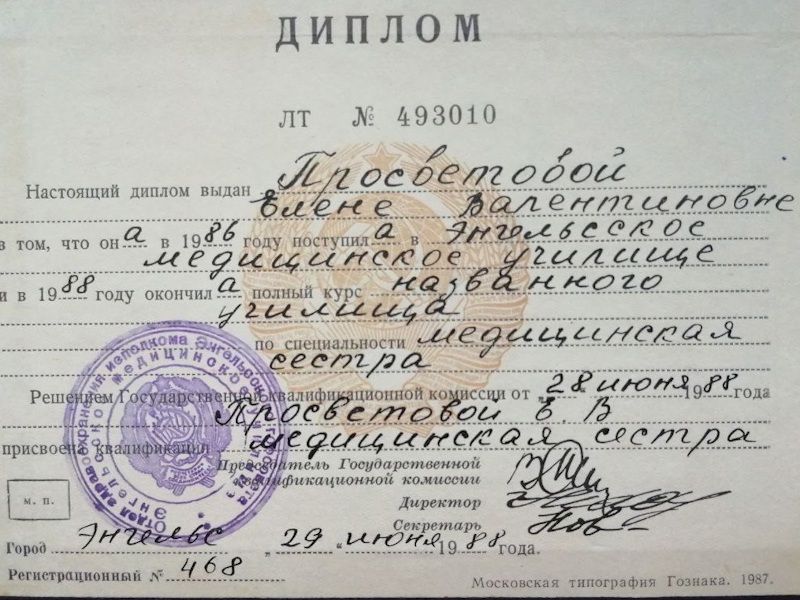 ДИПЛОМ
ЛТ № 493010
Настоящий диплом выдан Просветовой
Елене Валентиновне
в том, что она в 1986 году поступила в Энгельсское
медицинское училище
и в 1988 году окончила полный курс названного
училища
по специальности медицинская
сестра
Решением Государственной квалификационной комиссии от „28 июня 1988 года
Просветовой Е. В
присвоена квалификация медицинская сестра
Председатель Государственной
квалификационной комиссии
Директор
Секретарь
м. п.
Город Энгельс „ 29 “ июня 1988 года.
Регистрационный № 468
Московская типография Гознака. 1987.
Отдел здравоохранения исполкома Энгельсского
Энгельсское медицинское